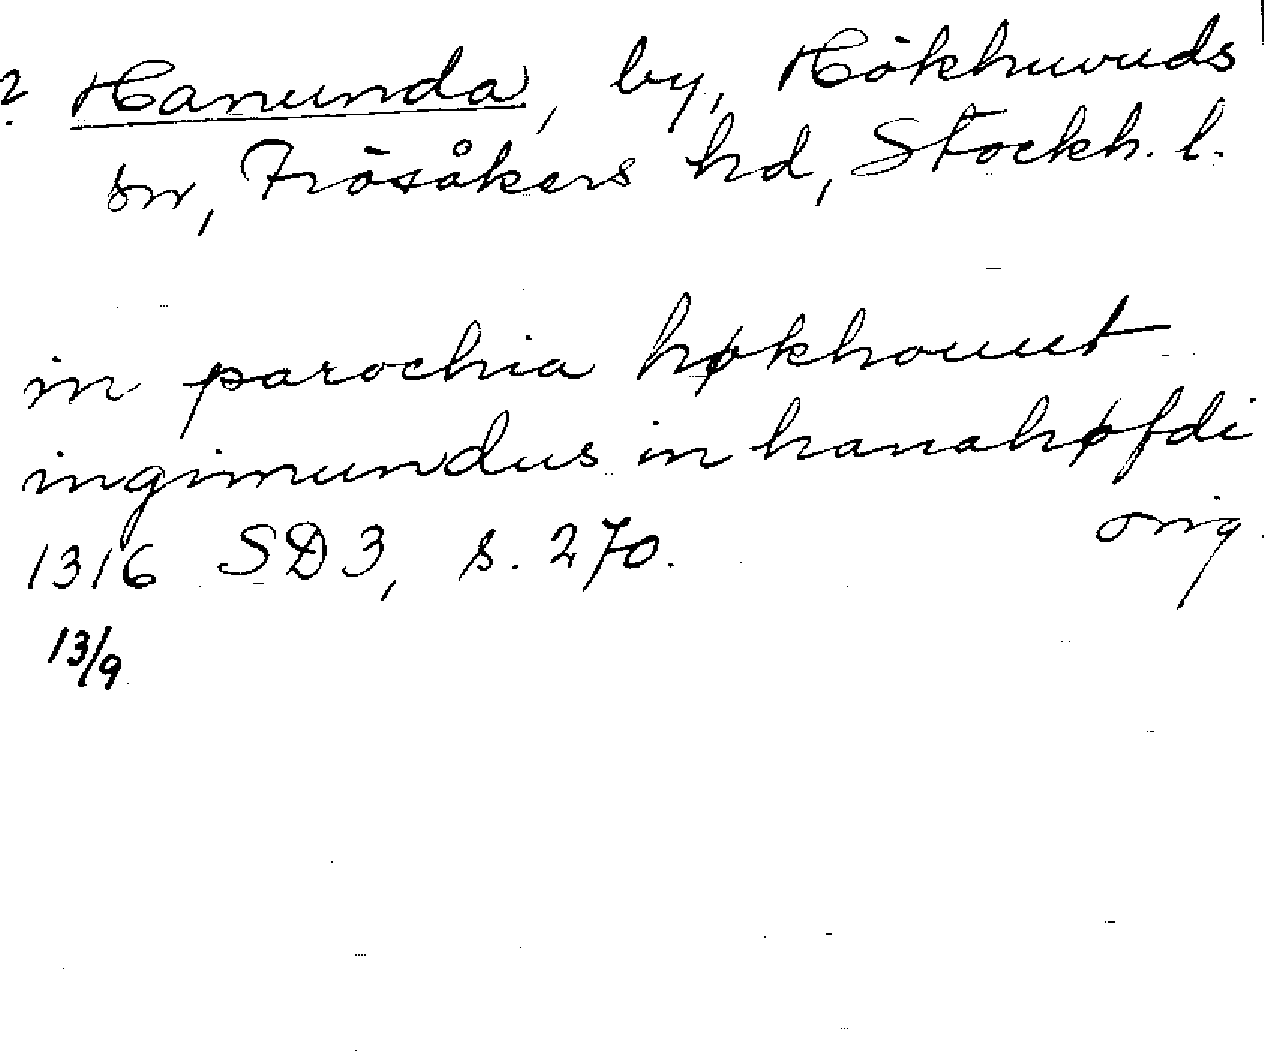 ? Hanunda, by, Hökhuvuds
sn, Frösåkers hd, Stockh. l.
in parochia høkhouut
ingimundus in hanahøfdi
1316 SD3, s. 270. orig.
13/9